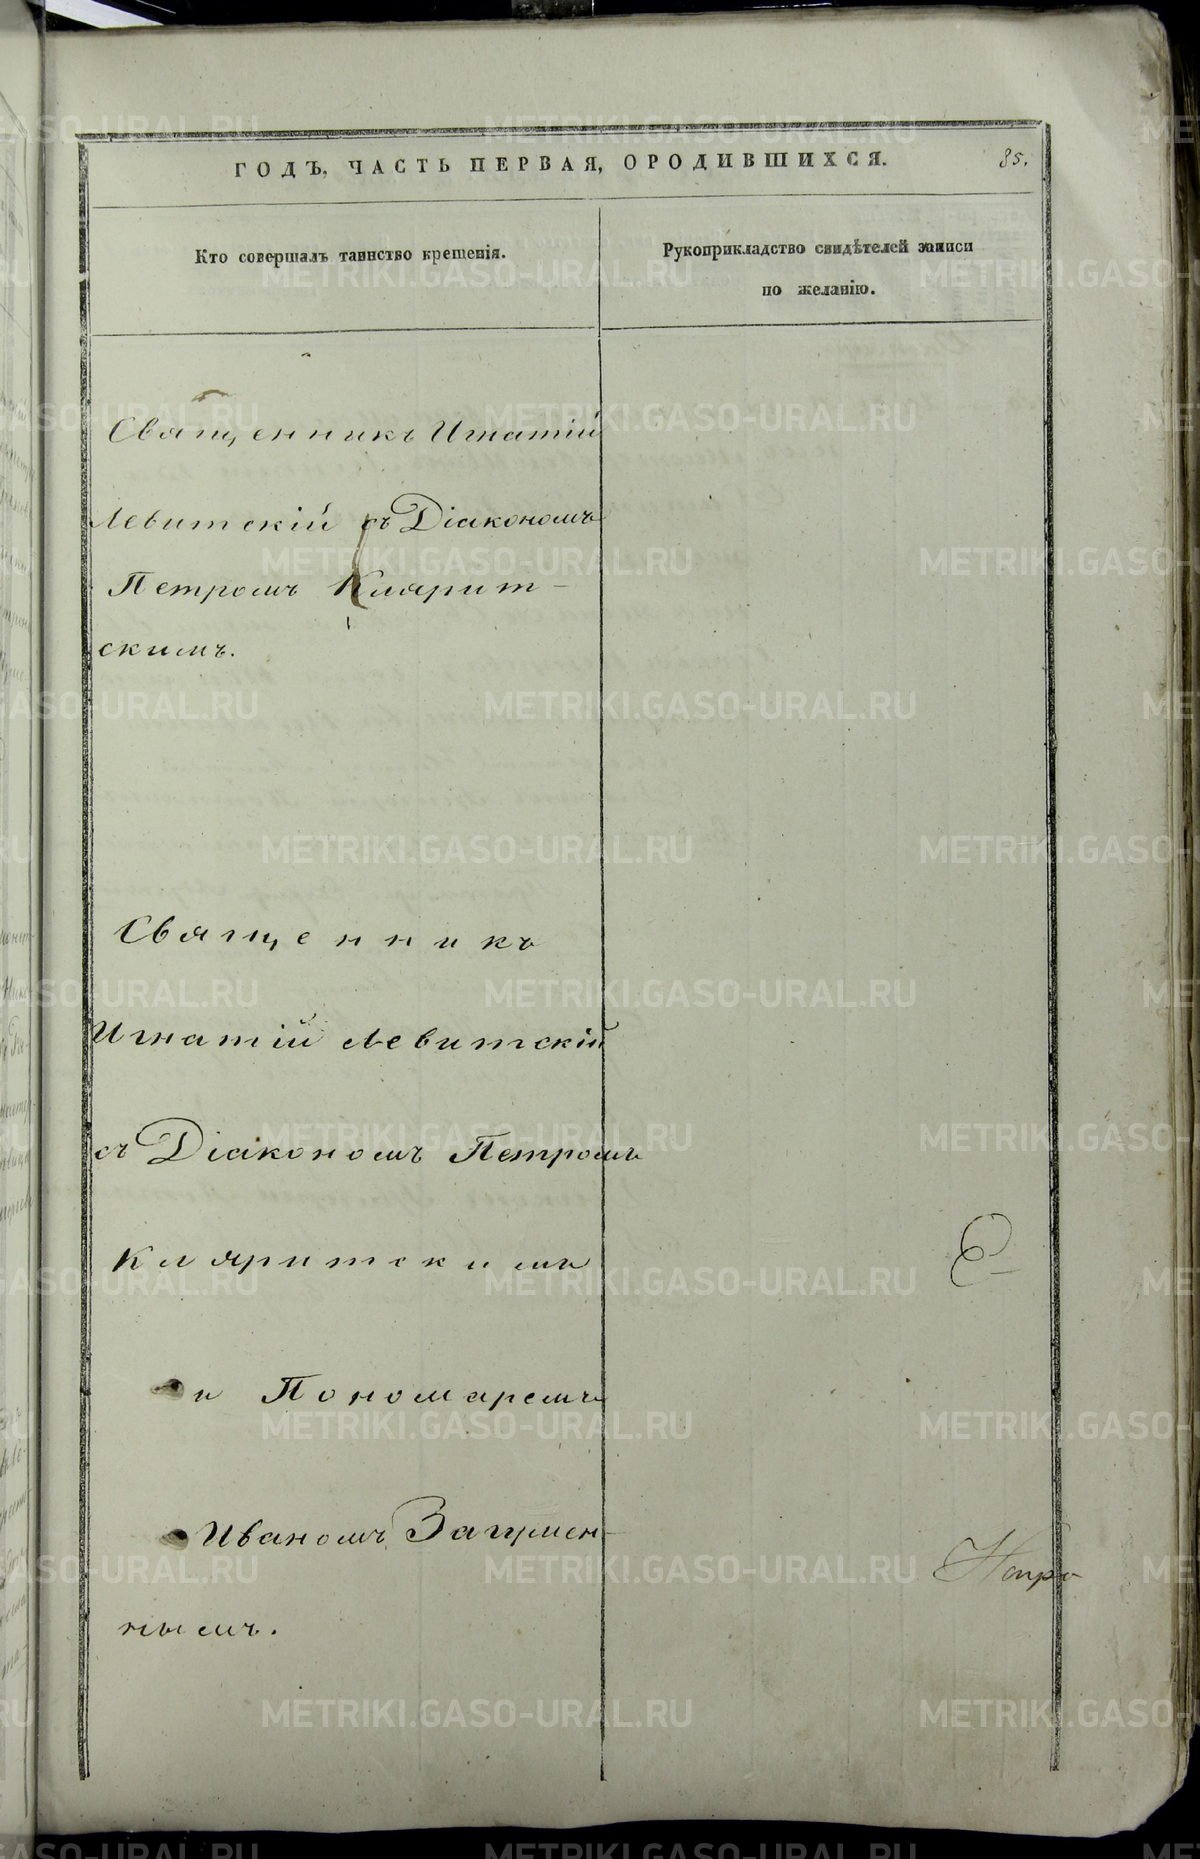 ГОДЪ, ЧАСТЬ ПЕРВАЯ, ОРОДИВШИХСЯ.
85.
Кто совершалъ таинство крещенія.
Рукоприкладство свидѣтелей записи
по желанію.
Священникъ Игнатій
Левитскій съ Діакономъ
Петромъ Кляритскимъ
скимъ.
Священникъ
Игнатій Левитскій
съ Діакономъ Петромъ
Кляритскимъ
и Пономаремъ
Иваномъ Загумен-
нымъ.
METRIKI.GASO-URAL.RU